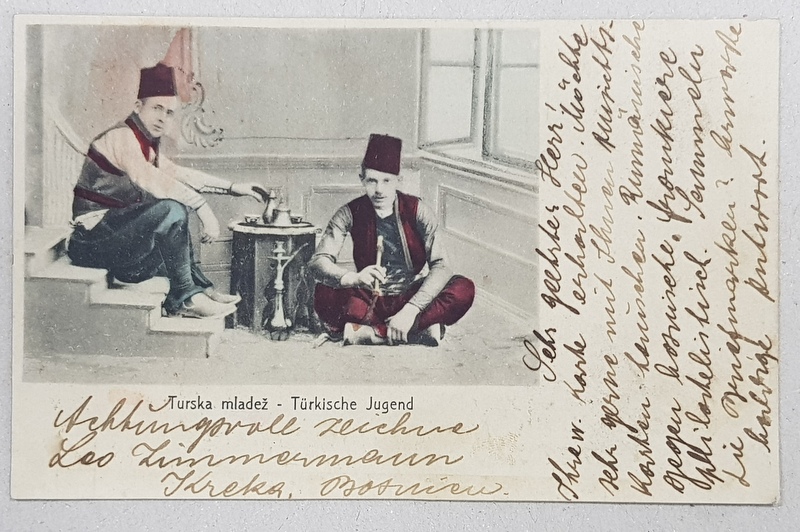 Sehr geehrter Herr!
Ihre w. Karte erhalten. Möchte
sehr gerne mit Ihnen Ansichts-
karten tauschen. Rumänische
gegen bosnische. frankiere
philatelistisch. Sammeln
Sie Briefmarken? erwarte
baldige Antwort.
Turska mladež - Türkische Jugend
Achtungsvoll zeichne
Leo Zimmermann
Kreka, Bosnien.